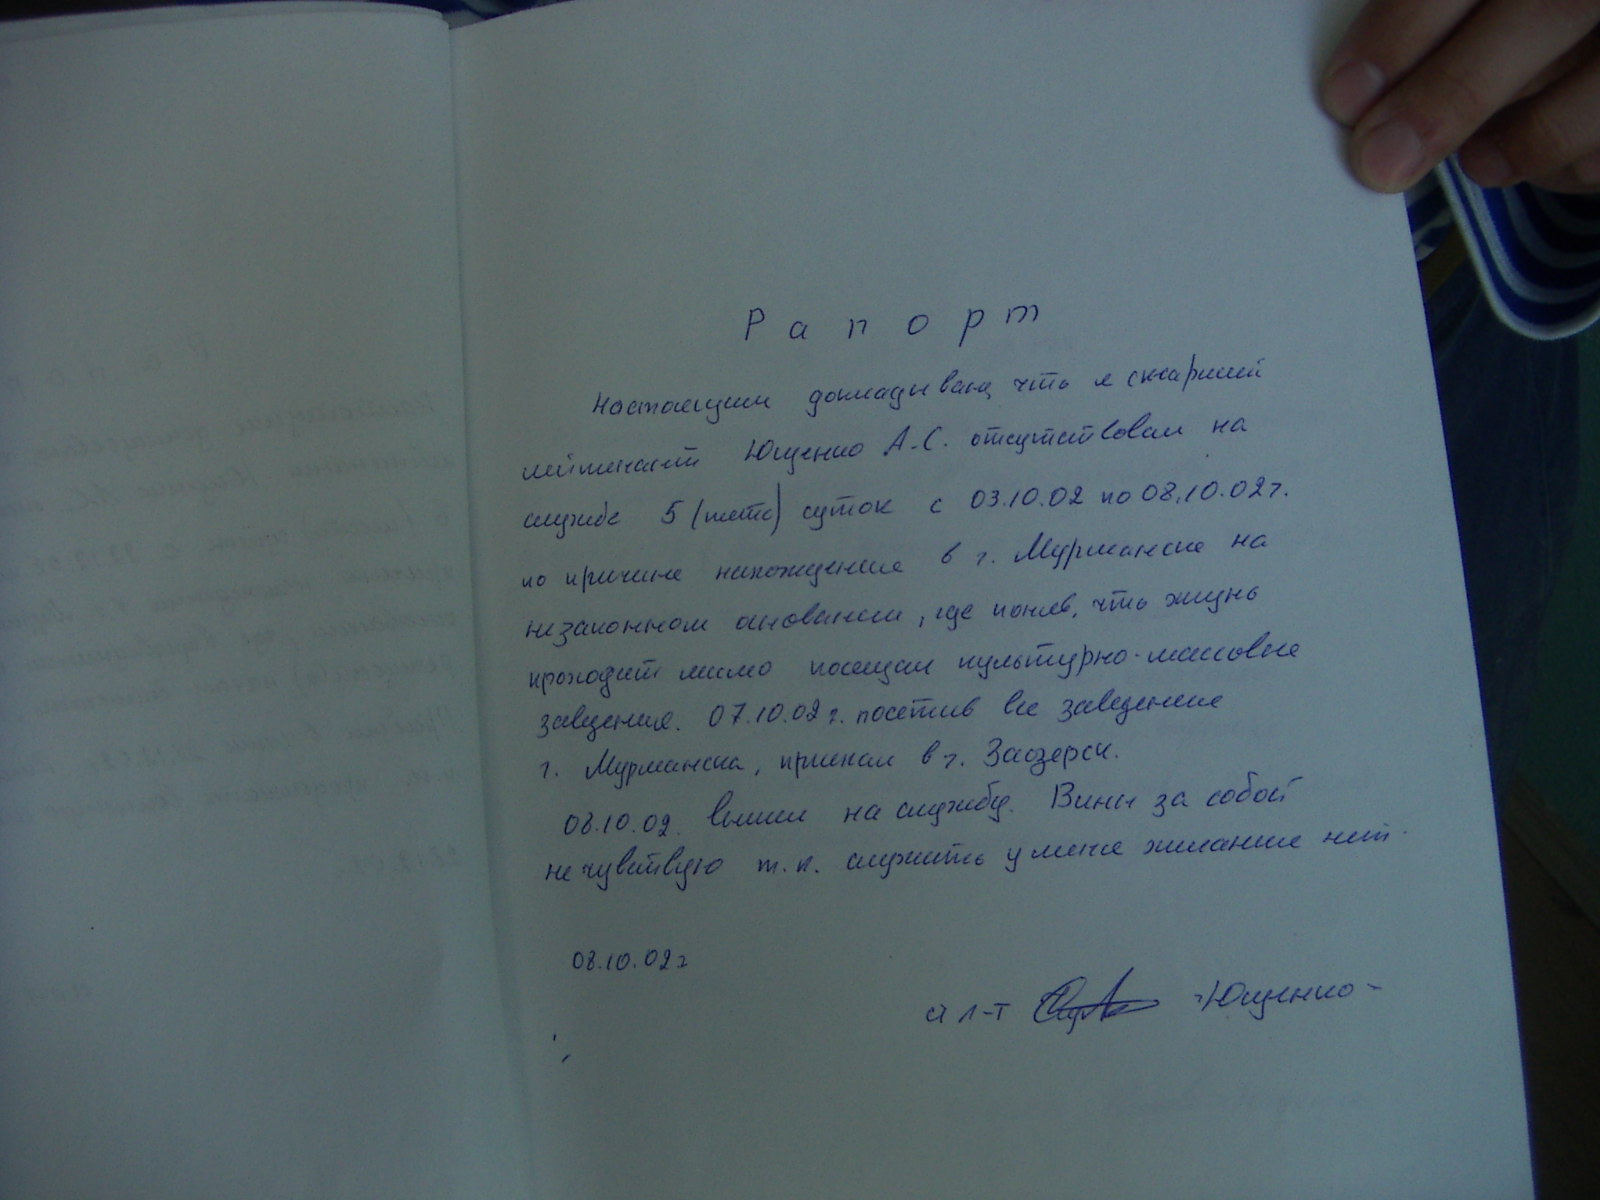 Рапорт
Настоящим докладываю, что я старший
лейтенант Ющенко А.С. отсутствовал на
службе 5 (пять) суток с 03.10.02 по 08.10.02г.
по причине нахождения в г. Мурманске на
незаконном основании, где поняв, что жизнь
проходит мимо посещал культурно-массовые
заведения. 07.10.02г. посетив все заведения
г. Мурманска, приехал в г. Заозерск.
08.10.02. вышел на службу. Вины за собой
не чувствую т.к. служить у меня желания нет.
08.10.02г
ст л-т -Ющенко-